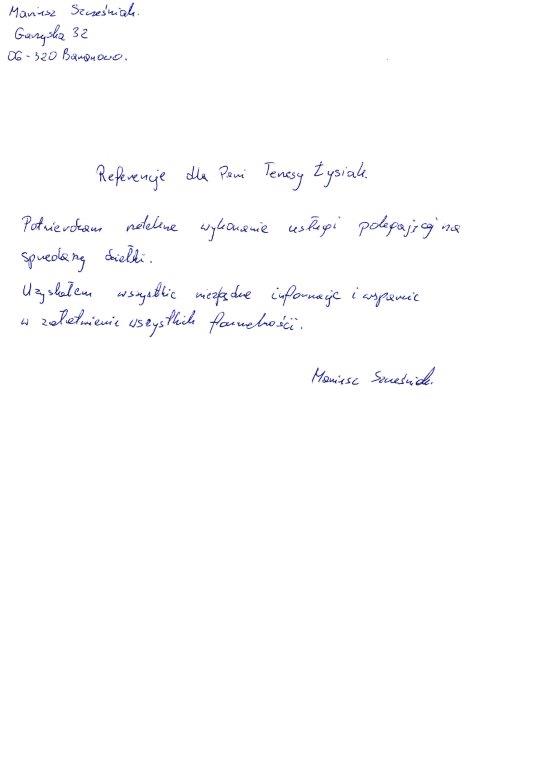 Mariusz Szcześniak.
Garyska 32
06-320 Baranowo.
Referencje dla Pani Teresy Żysiak.
Potwierdzam rzetelne wykonanie usługi polegającej na
sprzedaży działki.
Uzyskałem wszystkie niezbędne informacje i wsparcie
w załatwieniu wszystkich formalności.
Mariusz Szcześniak.